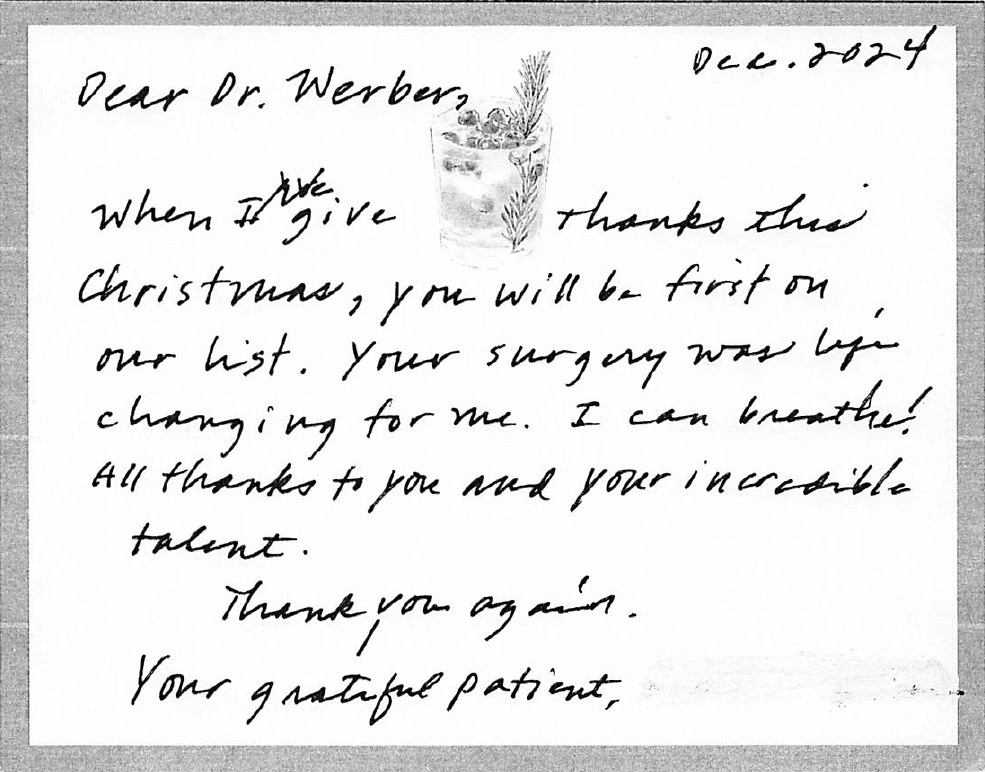 Dec. 2024
Dear Dr. Werber,
When I give thanks this
Christmas, you will be first on
our list. Your surgery was life
changing for me. I can breathe!
All thanks to you and your incredible
talent.
Thank you again.
Your grateful patient,